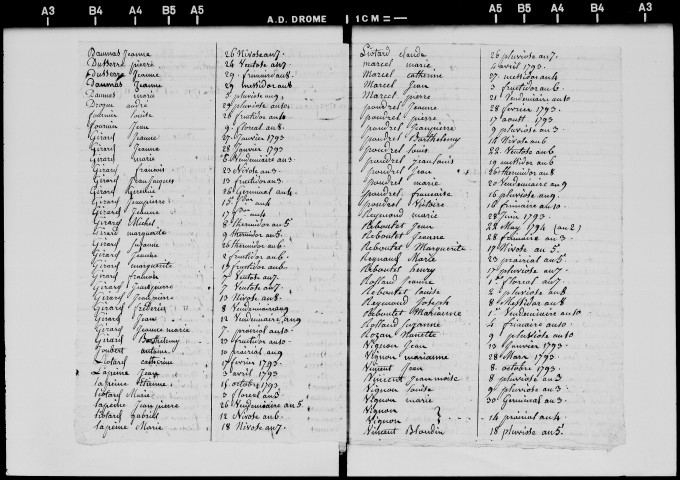 A3 B4 A4 B5 A5 A.D. DROME 1CM = — A5 B5 A4 B4 A3
Daumas Jeanne 26 Nivose an 7.
Dusserre pierre 24 Ventose an 7.
Dusserre Jeanne 29 frimaire an 8.
Daumas Jeanne 29 messidor an 8
Daumas marie 5 pluviose an 9.
Drogue andré 29 pluviose an 10.
fournier louise 26 fructidor an 10
fournier Jean 9 floreal an 8.
Girard Jeanne 27 Janvier 1793
Girard Jeanne 28 Janvier 1793
Girard marie Vendemiaire an 3.
Girard francois 23 Nivose an 3.
Girard Jean Jacques 13 fructidor an 3
Girard 26 Germinal an 4
Girard Jean pierre 15 an 4
Girard 17 an 4
Girard Michel 8 thermidor an 5
Girard marguerite 9 thermidor an 5.
Girard Suzanne 26 thermidor an 6.
Girard Jeanne 2 fructidor an 6.
Girard marguerite 14 fructidor an 6.
Girard francois 7 Ventose an 7.
Girard Jean pierre 7 Ventose an 7.
Girard Jean pierre 10 Nivose an 8.
Girard frederic 8 Vendemiaire an 9
Girard Jean 12 Vendemiaire an 9
Girard Jeanne marie 7 prairial an 10.
Girard Barthelemy 23 fructidor an 10
Joubert antoine 10 prairial an 9
Liotard catherine 17 fevrier 1793.
Lapeine Jean 3 avril 1793.
Lapeine Etienne 15 octobre 1793.
Liotard Marie 3 floreal an 3
Lapeine Jean pierre 26 Vendemiaire an 5.
Liotard Gabriel 12 Nivose an 6.
Lapeine Marie 18 Nivose an 7.
Liotard claude 26 pluviose an 7.
marcel marie 4 avril 1793.
Marcel catherine 27 messidor an 4
Marcel Jean 3 fructidor an 6.
Marcel pierre 21 Vendemiaire an 10
poudrel Jeanne 28 fevrier 1793.
poudrel pierre 17 aoust 1793.
poudrel Jean pierre 9 pluviose an 3.
poudrel Barthelemy 14 Nivose an 6
poudrel louis 22 Ventose an 6.
poudrel jean louis 19 messidor an 6
poudrel Jean 26 thermidor an 8
poudrel marie 20 Vendemiaire an 9
poudrel francoise 16 pluviose an 9.
poudrel Victoire 16 frimaire an 10.
Reymond marie 28 Juin 1793.
Reboutet Jean 22 May 1794 (an 2)
Reboutet Jeanne 28 frimaire an 3.
Reboutet Marguerite 17 Nivose an 5.
Reynaud Marie 23 prairial an 5.
Reboutet henry 17 pluviose an 7.
Rolland Jeanne 1er floreal an 7.
Reboutet louise 2 pluviose an 8
Reymond Joseph 8 Messidor an 8
Reboutet Marianne 1er Vendemiaire an 10
Rolland Suzanne 4 frimaire an 10.
Rozan Nanette 9 pluviose an 10
Vignon Jean 13 Janvier 1793.
Vignon marianne 28 Mars 1793.
Vincent Jean 8 octobre 1793.
Vincent Jean moise 8 pluviose an 3
Vignon louise 9 pluviose an 3.
Vignon marie 30 Germinal an 3
Vignon
Vignon 14 prairial an 4.
Vincent Blondin 18 pluviose an 5